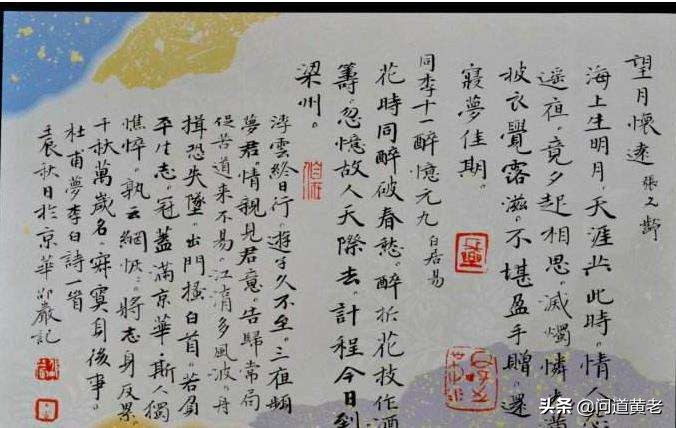 望月懷遠 張九齡
海上生明月。天涯共此時。情人怨
遥夜。竟夕起相思。滅燭憐光滿
披衣覺露滋。不堪盈手贈。還
寢夢佳期。
同李十一醉憶元九 白居易
花時同醉破春愁。醉折花枝作酒
籌。忽憶故人天際去。計程今日到
梁州。
浮雲終日行。遊子久不至。三夜頻
夢君。情親見君意。告歸常局
促。苦道来不易。江湖多風波。舟
楫恐失墜。出門搔白首。若負
平生志。冠蓋滿京華。斯人獨
憔悴。孰云網恢。將老身反累。
千秋萬歲名。寂寞身後事。
杜甫夢李白詩一首
壬辰秋日於京華 邵巖記
头条 @问道黄老